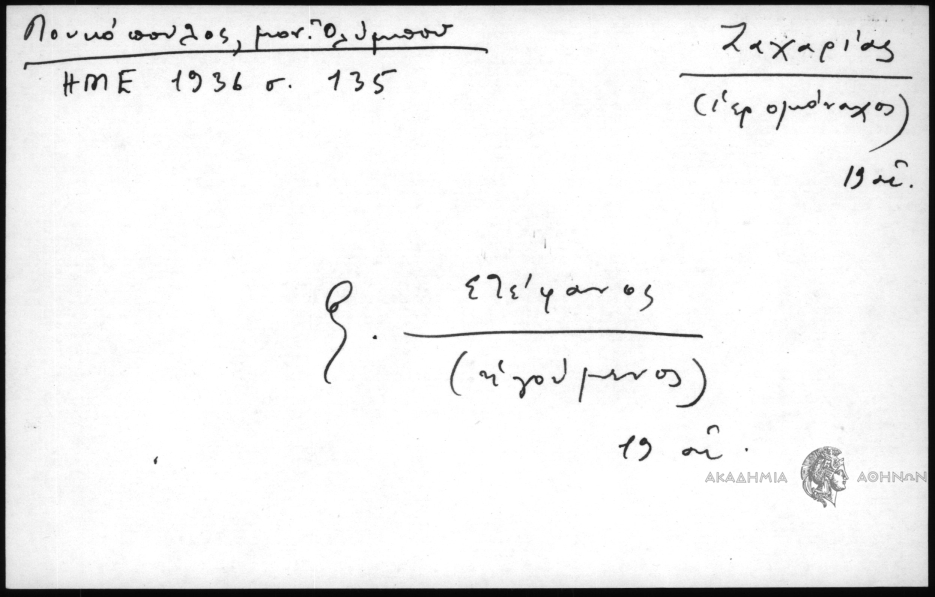 Πουκόπουλος, μον. Ὀλύμπου
ΗΜΕ 1936 σ. 135
Ζαχαρίας
(ἱερομόναχος)
19 αἰ.
Στέφανος
(ἡγούμενος)
19 αἰ.
ΑΚΑΔΗΜΙΑ ΑΘΗΝΩΝ